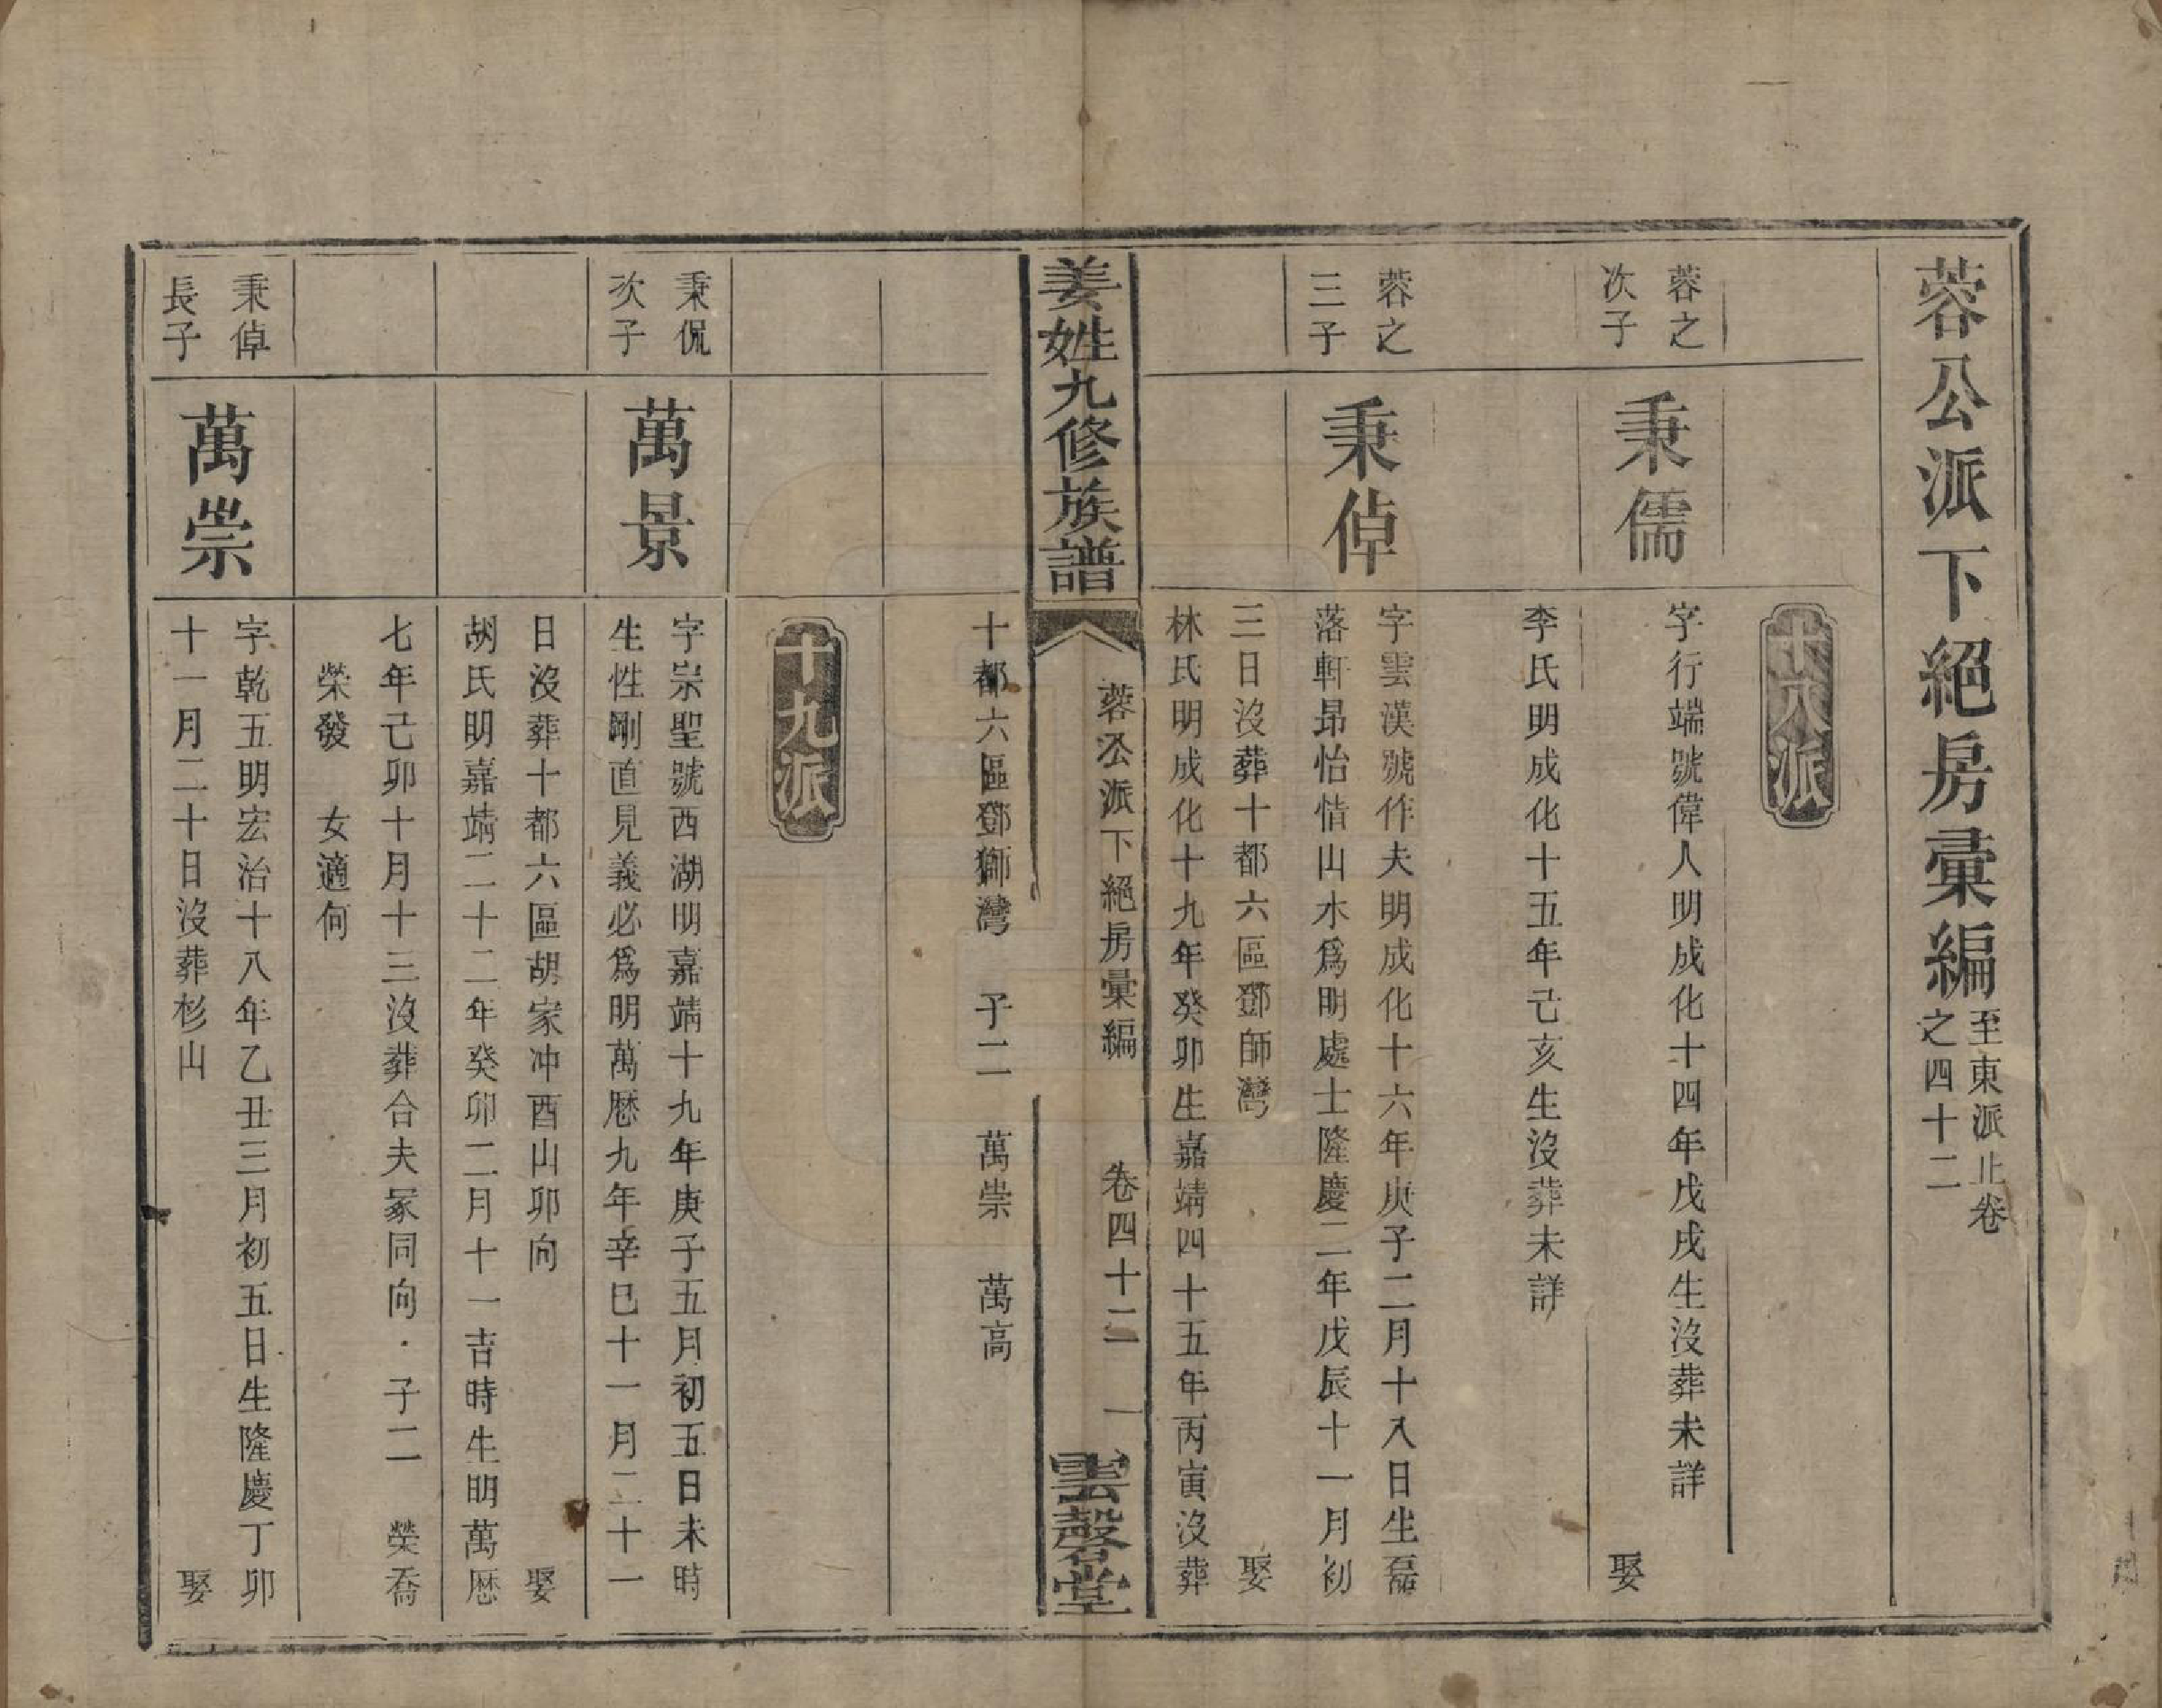 蓉公派下絕房彙編
至東派止卷
之四十二
十八派
蓉之
次子
秉儒
字行端號偉人明成化十四年戊戌生沒葬未詳
娶
李氏明成化十五年己亥生沒葬未詳
蓉之
三子
秉倬
字雲漢號作夫明成化十六年庚子二月十八日生磊
落軒昂怡情山水爲明處士隆慶二年戊辰十一月初
三日沒葬十都六區鄧師灣 娶
林氏明成化十九年癸卯生嘉靖四十五年丙寅沒葬
姜姓九修族譜
蓉公派下絕房彙編 卷四十二 一
雲磬堂
十都六區鄧獅灣 子二 萬崇 萬高
十九派
秉侃
次子
萬景
字崇聖號西湖明嘉靖十九年庚子五月初五日未時
生性剛直見義必爲明萬歷九年辛巳十一月二十一
日沒葬十都六區胡家冲酉山卯向 娶
胡氏明嘉靖二十二年癸卯二月十一吉時生明萬歷
七年己卯十月十三沒葬合夫冢同向 子二 榮喬
榮發 女適何
秉倬
長子
萬崇
字乾五明宏治十八年乙丑三月初五日生隆慶丁卯
十一月二十日沒葬杉山 娶